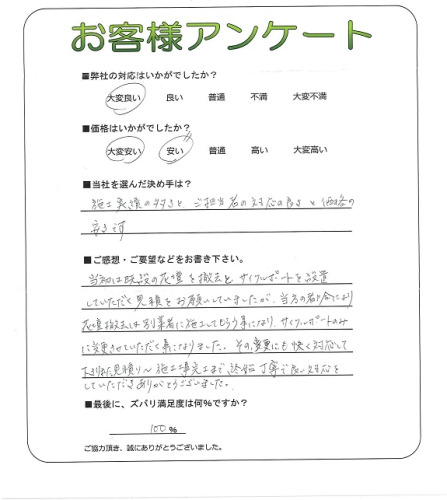 お客様アンケート
■弊社の対応はいかがでしたか?
大変良い 良い 普通 不満 大変不満
■価格はいかがでしたか?
大変安い 安い 普通 高い 大変高い
■当社を選んだ決め手は?
施工実績の多さと、ご担当者の対応の良さと価格の
安さです
■ご感想・ご要望などをお書き下さい。
当初は既設の花壇を撤去し、サイクルポートを設置
していただく見積をお願いしていましたが、当方の都合により
花壇撤去は別業者に施工してもらう事になり、サイクルポートのみ
に変更させていただく事になりました。その変更にも快く対応して
下さり、見積り〜施工完工まで、終始丁寧で良い対応を
していただきありがとうございました。
■最後に、ズバリ満足度は何%ですか?
100 %
ご協力頂き、誠にありがとうございました。